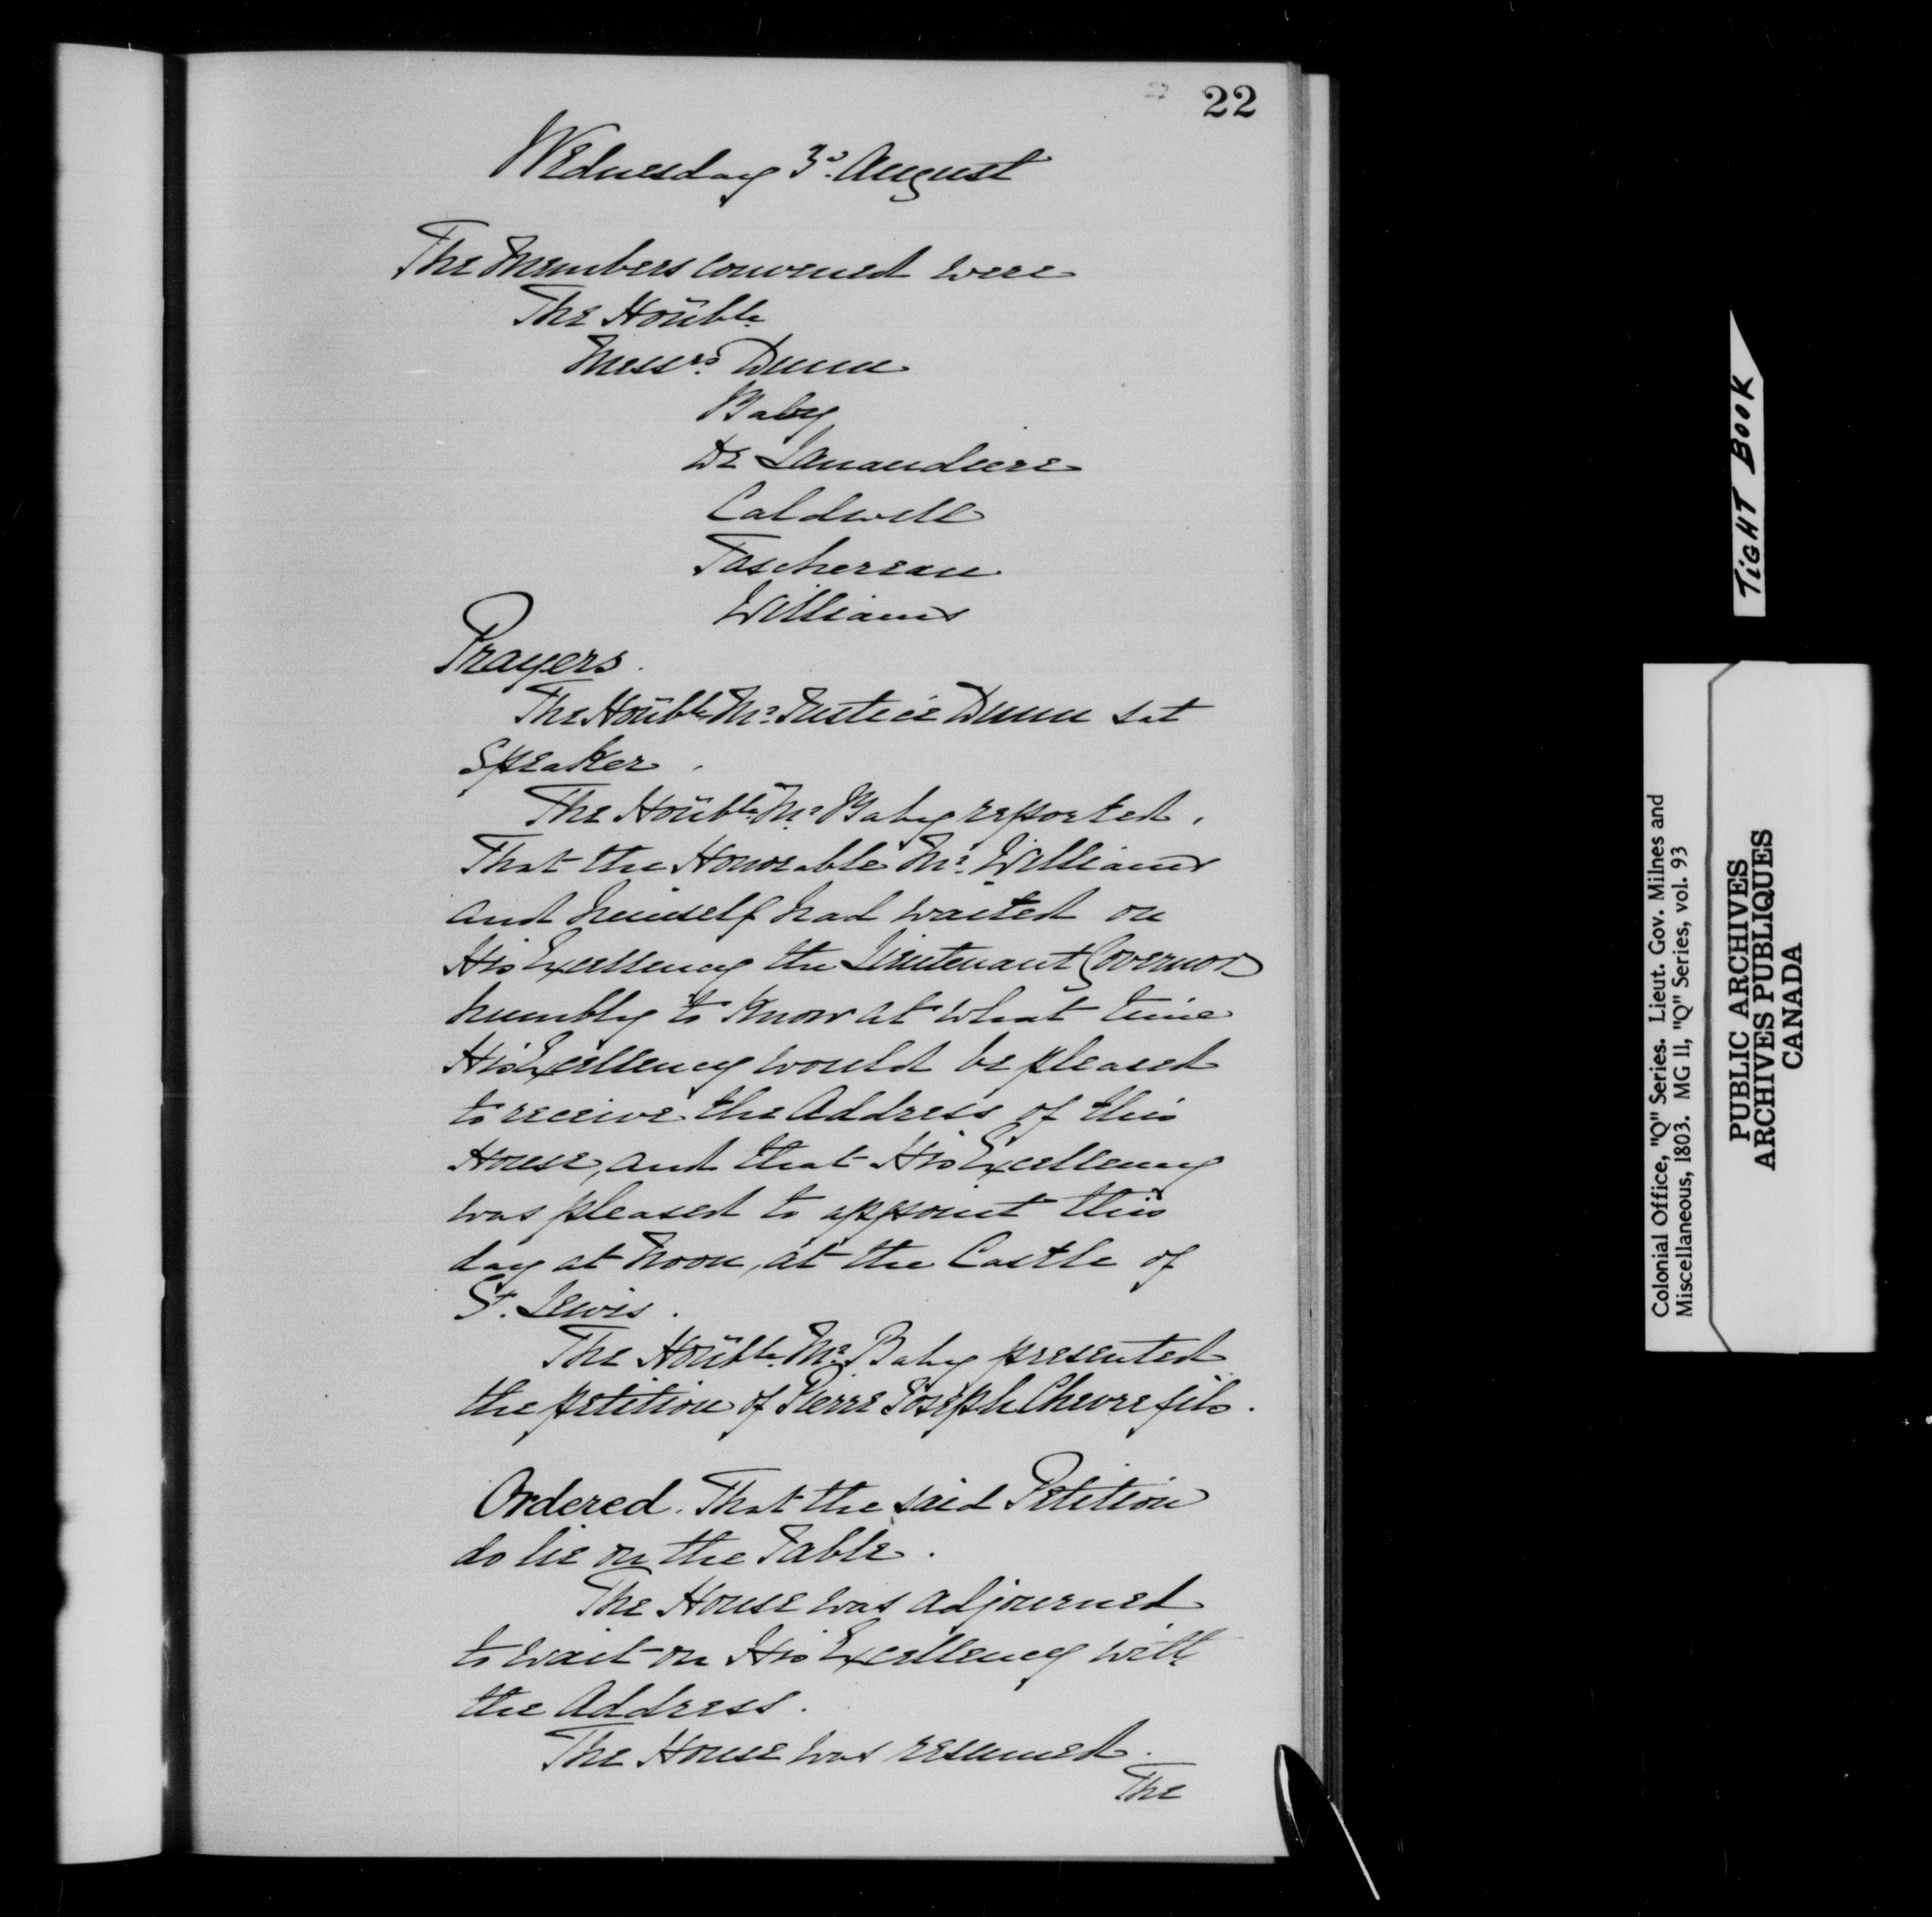 22
Wednesday 3d. August
The Members convened were
The Honble.
Messrs. Dunn
Baby
De Lanaudiere
Caldwell
Taschereau
Williams
Prayers.
The Honble. Mr. Justice Dunn sat
Speaker.
The Honble. Mr. Baby reported,
That the Honorable Mr. Williams
and himself had waited on
His Excellency the Lieutenant Governor
humbly to know at what time
His Excellency would be pleased
to receive the Address of this
House, and that His Excellency
was pleased to appoint this
day at Noon, at the Castle of
St. Lewis.
The Honble. Mr. Baby presented
the petition of Pierre Joseph Chevrefils.
Ordered. That the said Petition
do lie on the Table.
The House was adjourned
to wait on His Excellency with
the Address.
The House was resumed.
The
TIGHT BOOK
Colonial Office, "Q" Series. Lieut. Gov. Milnes and
Miscellaneous, 1803. MG 11, "Q" Series, vol. 93
PUBLIC ARCHIVES
ARCHIVES PUBLIQUES
CANADA